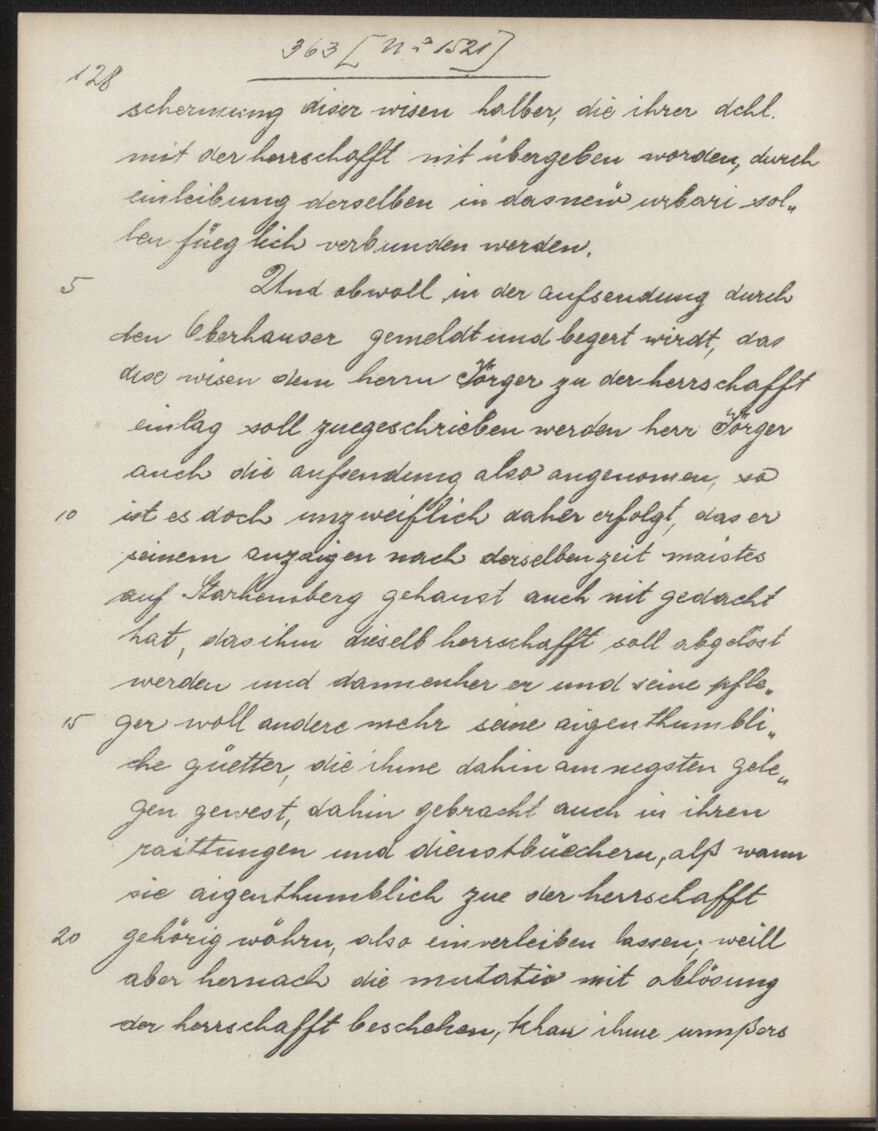 363 [Nº 1521]
128
schermung diser wisen halber, die ihrer dchl.
mit der herrschafft nit übergeben worden, durch
einleibung derselben in das neü urbari sol„
len füeglich verbunden werden.
5 Und obwoll in der aufsendung durch
den Oberhauser gemeldt und begert wirdt, das
dise wisen dem herrn Jörger zu der herrschafft
einlag soll zuegeschriben werden herr Jörger
auch die aufsendung also angenomen, so
10 ist es doch unzweiflich daher erfolgt, das er
seinem anzaigen nach derselben zeit maistes
auf Starhemberg gehaust auch nit gedacht
hat, das ihm dieselb herrschafft soll abgelöst
werden und dannenher er und seine pfle„
15 ger woll andere mehr seine aigenthumbli„
che güetter, die ihme dahin am negsten gele„
gen gewest, dahin gebracht auch in ihren
raittungen und dienstbüechern, alß wann
sie aigenthumblich zue der herrschafft
20 gehörig währn, also einverleiben lassen; weill
aber hernach die mutatio mit ablösung
der herrschafft beschehen, khan ihme